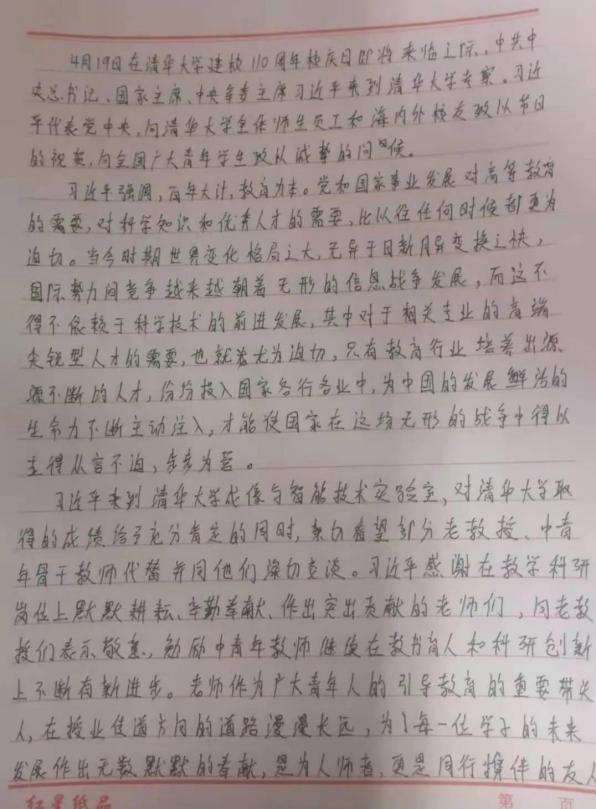 4月19日在清华大学建校110周年校庆日即将来临之际、中共中
央总书记、国家主席、中央军委主席习近平来到清华大学考察。习近
平代表党中央,向清华大学全体师生员工和海内外校友致以节日
的祝贺,向全国广大青年学生致以诚挚的问候。
习近平强调,百年大计,教育为本。党和国家事业发展对高等教育
的需要,对科学知识和优秀人才的需要,比以往任何时候都更为
迫切。当今时期世界变化格局之大,无异于日新月异变换之快,
国际势力间竞争越来越朝着无形的信息战争发展,而这不
得不依赖于科学技术的前进发展,其中对于相关专业的高端
尖锐型人才的需要,也就尤为迫切,只有教育行业培养出源
源不断的人才,纷纷投入国家各行各业中,为中国的发展鲜活的
生命力不断主动注入,才能使国家在这场无形的战争中得以
走得从言不迫,多多为营。
习近平来到清华大学成像与智能技术实验室,对清华大学取
得的成绩给予充分肯定的同时,亲切看望部分老教授、中青
年骨干教师代替并同他们深切交谈。习近平感谢在教学科研
岗位上默默耕耘、辛勤奉献、作出突出贡献的老师们,向老教
授们表示敬意,勉励中青年教师继续在教书育人和科研创新
上不断有新进步。老师作为广大青年人的引导教育的重要带头
人,在授业传道方向的道路漫漫长远,为了每一位学子的未来
发展作出无数默默的奉献,是为人师者,更是同行撑伴的友人
红星纸品
第 页